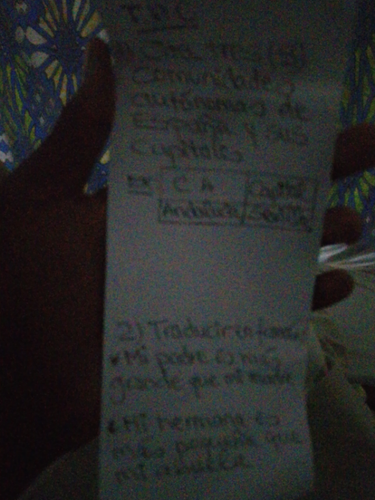 T.P.C
1) Cites tres (3)
Comunidades
autónomas de
España y sus
Capitales
EX C A Capital
Andalucía Sevilla
2) Traducir en
* Mi padre es más
grande que mi madre
* Mi hermana es
más pequeña que
mi abuela